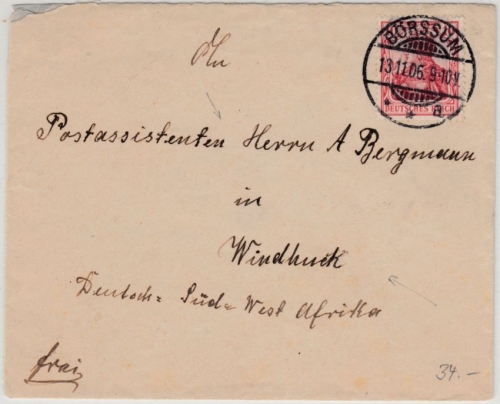 BÖRSSUM
13.11.06. 9-10V
* * a
DEUTSCHES REICH
An
Postassistenten Herrn A Bergmann
in
Windhuck
Deutsch= Süd=West Afrika
frei
34.-